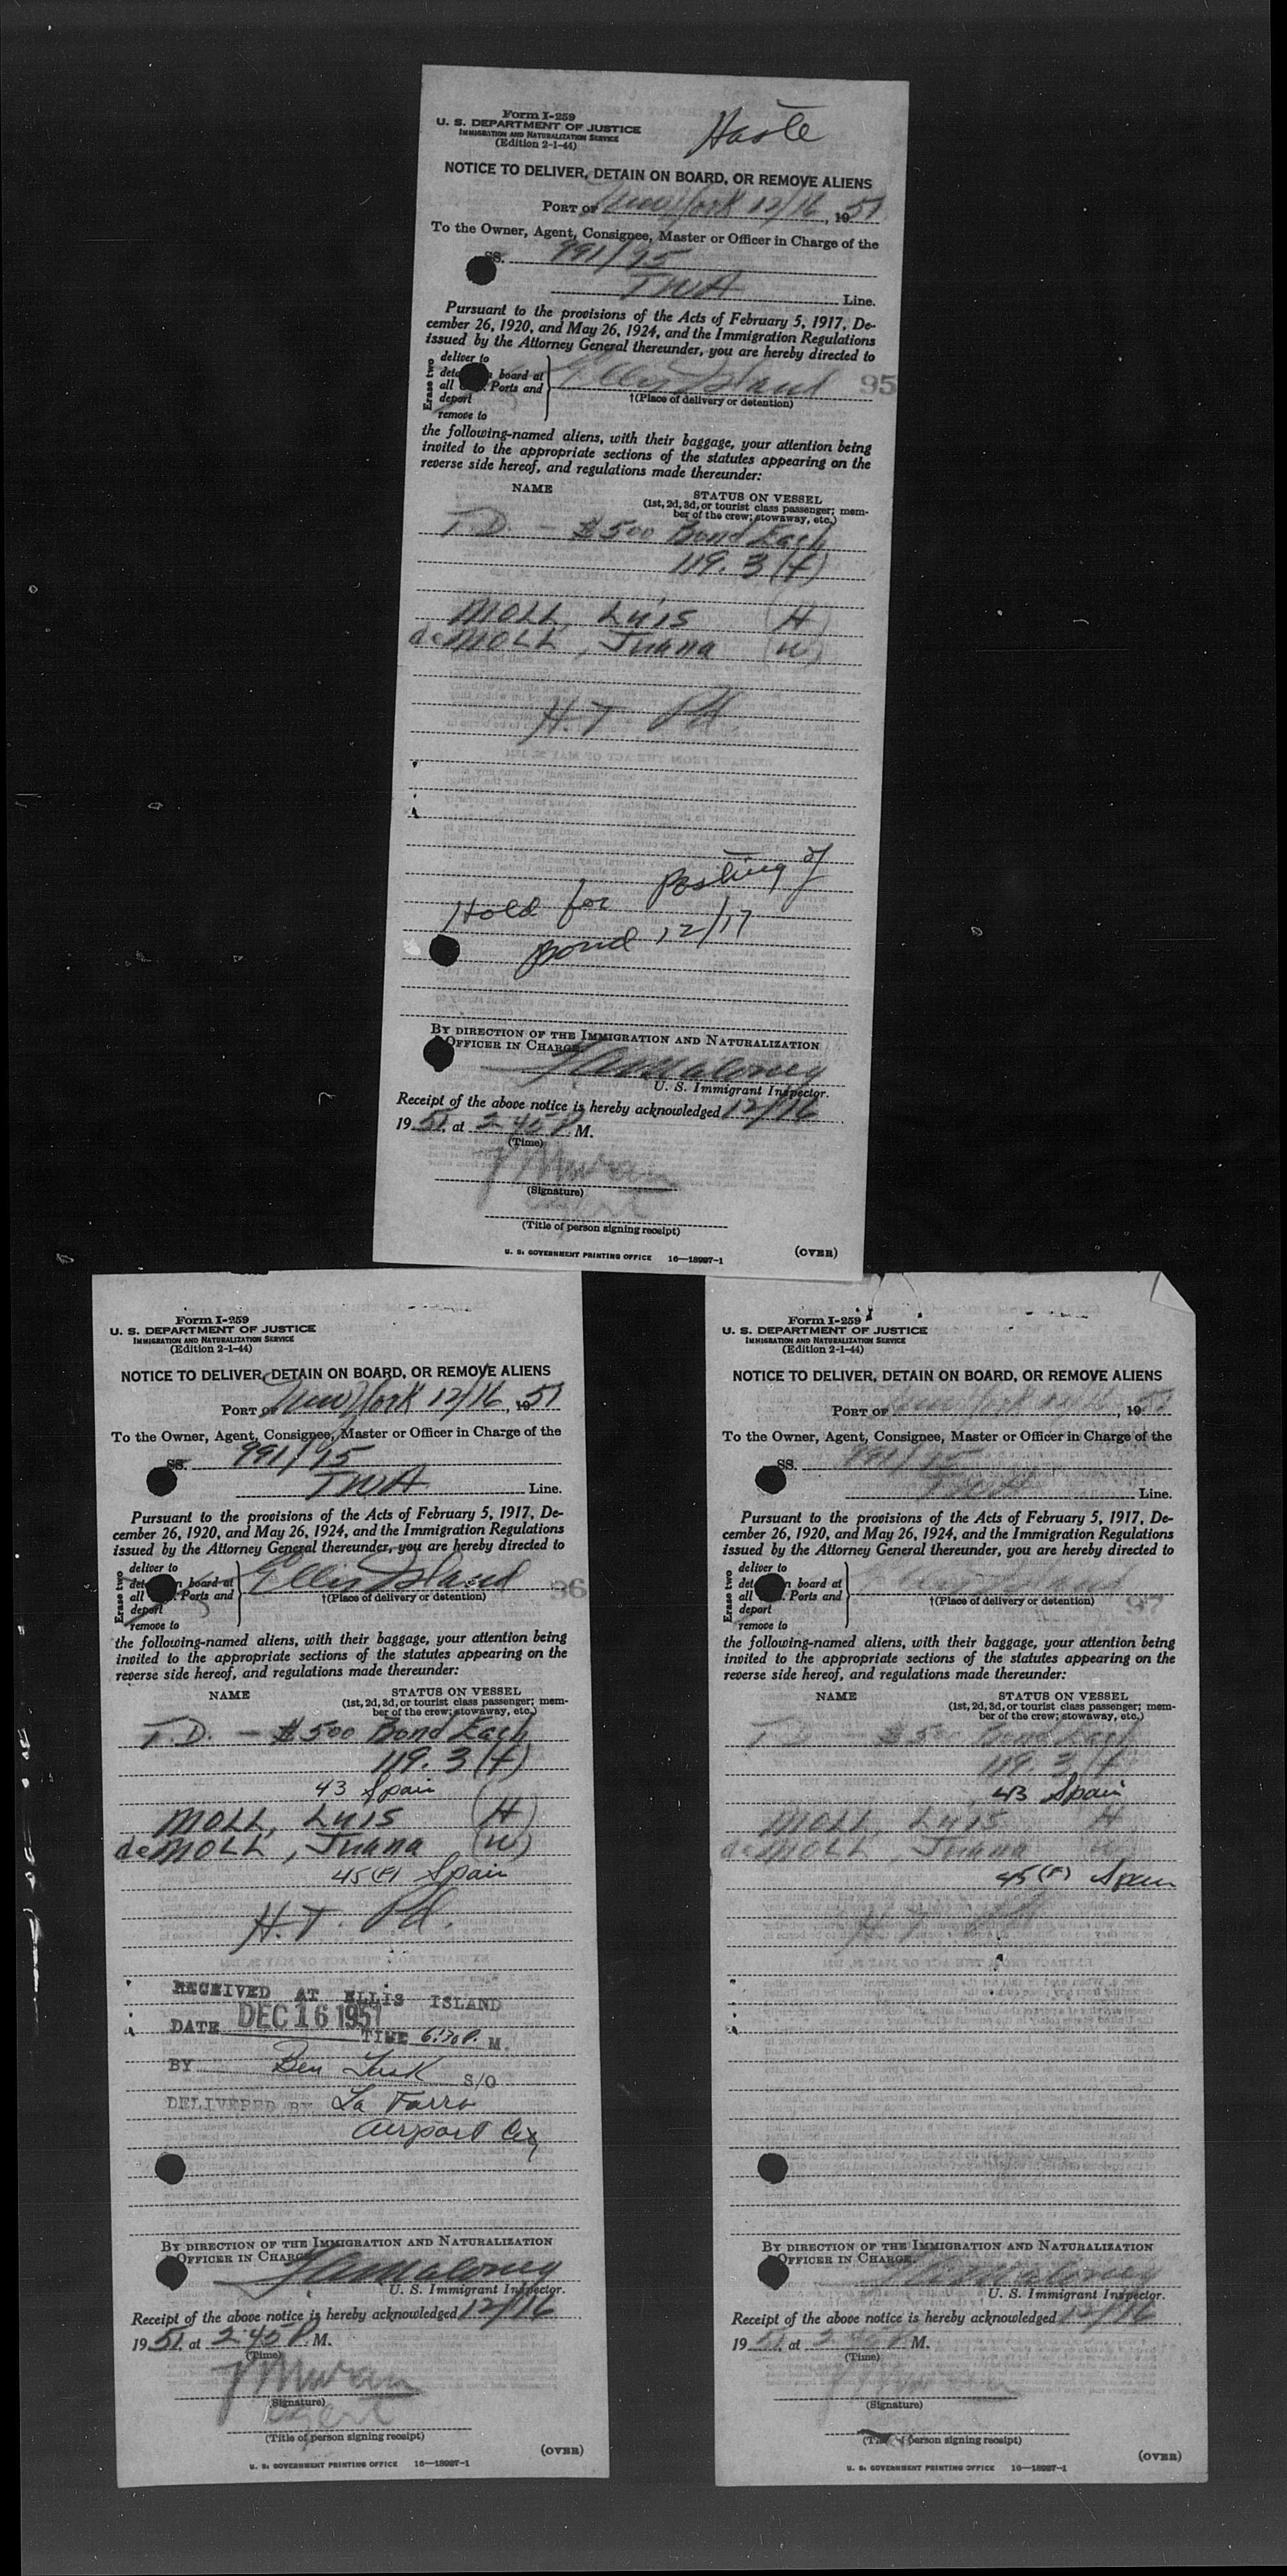 Form I-259
U. S. DEPARTMENT OF JUSTICE
IMMIGRATION AND NATURALIZATION SERVICE
(Edition 2-1-44)
Haste
NOTICE TO DELIVER, DETAIN ON BOARD, OR REMOVE ALIENS
PORT OF New York 12/16, 1951
To the Owner, Agent, Consignee, Master or Officer in Charge of the
SS. 991/95
TWA Line.
Pursuant to the provisions of the Acts of February 5, 1917, De-
cember 26, 1920, and May 26, 1924, and the Immigration Regulations
issued by the Attorney General thereunder, you are hereby directed to
Erase two
deliver to
board at
all Ports and
deport
remove to
Ellis Island 95
†(Place of delivery or detention)
the following-named aliens, with their baggage, your attention being
invited to the appropriate sections of the statutes appearing on the
reverse side hereof, and regulations made thereunder:
NAME STATUS ON VESSEL
(1st, 2d, 3d, or tourist class passenger; mem-
ber of the crew; stowaway, etc.)
T.D. - $500 Bond Each
119.3 (f)
MOLL, Luis (H)
de MOLL, Juana (W)
H.T. Pd.
Hold for posting of
bond 12/17
BY DIRECTION OF THE IMMIGRATION AND NATURALIZATION
OFFICER IN CHARGE.
Maloney
U. S. Immigrant Inspector.
Receipt of the above notice is hereby acknowledged 12/16
1951, at 2 45 P M.
(Time)
Moran
(Signature)
Agent
(Title of person signing receipt)
U. S. GOVERNMENT PRINTING OFFICE 16—18997-1
(OVER)
Form I-259
U. S. DEPARTMENT OF JUSTICE
IMMIGRATION AND NATURALIZATION SERVICE
(Edition 2-1-44)
NOTICE TO DELIVER, DETAIN ON BOARD, OR REMOVE ALIENS
PORT OF New York 12/16, 1951
To the Owner, Agent, Consignee, Master or Officer in Charge of the
SS. 991/95
TWA Line.
Pursuant to the provisions of the Acts of February 5, 1917, De-
cember 26, 1920, and May 26, 1924, and the Immigration Regulations
issued by the Attorney General thereunder, you are hereby directed to
Erase two
deliver to
board at
all Ports and
deport
remove to
Ellis Island 96
†(Place of delivery or detention)
the following-named aliens, with their baggage, your attention being
invited to the appropriate sections of the statutes appearing on the
reverse side hereof, and regulations made thereunder:
NAME STATUS ON VESSEL
(1st, 2d, 3d, or tourist class passenger; mem-
ber of the crew; stowaway, etc.)
T.D. - $500 Bond Each
119.3 (f)
43 Spain
MOLL, Luis (H)
de MOLL, Juana (W)
45 (F) Spain
H.T. Pd.
RECEIVED AT ELLIS ISLAND
DATE DEC 16 1951
TIME 6:30 P. M.
BY Ben Tusk S/O
DELIVERED BY La Farro
Airport
BY DIRECTION OF THE IMMIGRATION AND NATURALIZATION
OFFICER IN CHARGE.
Maloney
U. S. Immigrant Inspector.
Receipt of the above notice is hereby acknowledged 12/16
1951, at 2 45 P M.
(Time)
Moran
(Signature)
Agent
(Title of person signing receipt)
(OVER)
U. S. GOVERNMENT PRINTING OFFICE 16—18997-1
Form I-259
U. S. DEPARTMENT OF JUSTICE
IMMIGRATION AND NATURALIZATION SERVICE
(Edition 2-1-44)
NOTICE TO DELIVER, DETAIN ON BOARD, OR REMOVE ALIENS
PORT OF New York 12/16, 1951
To the Owner, Agent, Consignee, Master or Officer in Charge of the
SS. 991/95
TWA Line.
Pursuant to the provisions of the Acts of February 5, 1917, De-
cember 26, 1920, and May 26, 1924, and the Immigration Regulations
issued by the Attorney General thereunder, you are hereby directed to
Erase two
deliver to
board at
all Ports and
deport
remove to
Ellis Island 97
†(Place of delivery or detention)
the following-named aliens, with their baggage, your attention being
invited to the appropriate sections of the statutes appearing on the
reverse side hereof, and regulations made thereunder:
NAME STATUS ON VESSEL
(1st, 2d, 3d, or tourist class passenger; mem-
ber of the crew; stowaway, etc.)
T.D. - $500 Bond Each
119.3 (f)
43 Spain
MOLL, Luis H
de MOLL, Juana W
45 (F) Spain
H.T. Pd
BY DIRECTION OF THE IMMIGRATION AND NATURALIZATION
OFFICER IN CHARGE.
Maloney
U. S. Immigrant Inspector.
Receipt of the above notice is hereby acknowledged 12/16
1951, at 2 45 P M.
(Time)
Moran
(Signature)
(Title of person signing receipt)
(OVER)
U. S. GOVERNMENT PRINTING OFFICE 16—18997-1